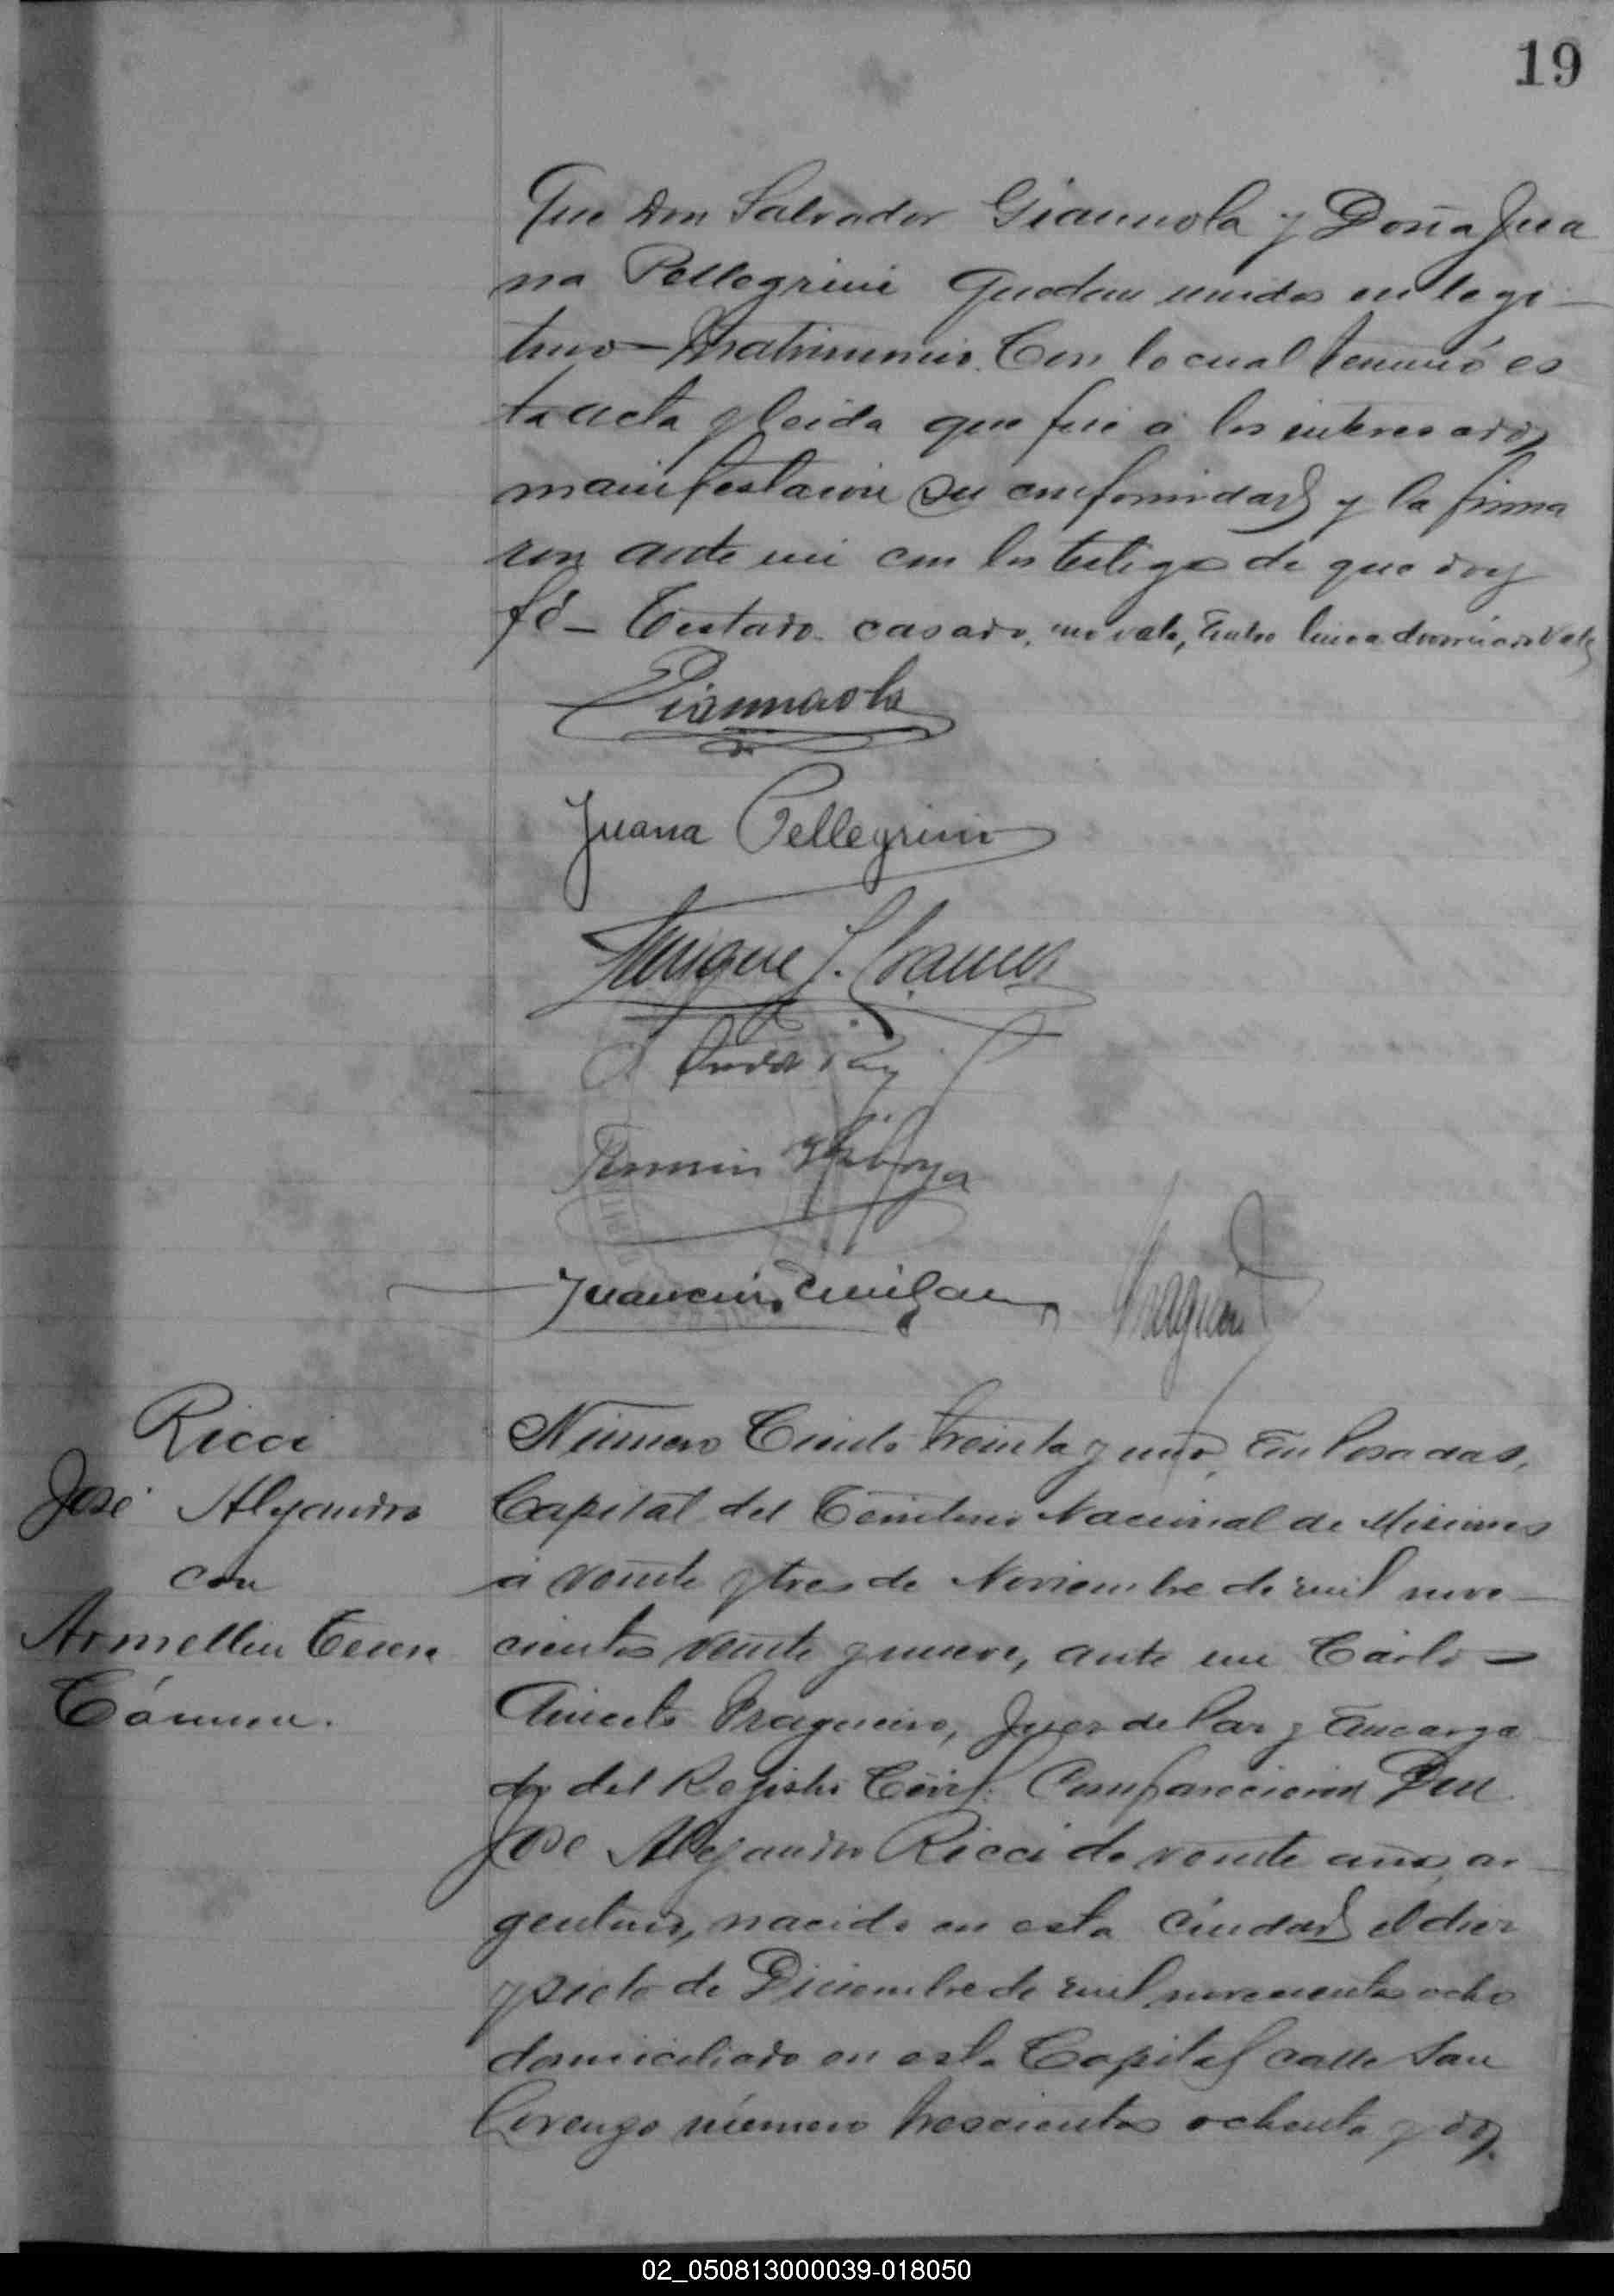 19
Que Don Salvador Giannola y Doña Jua
na Pellegrini quedan unidos en legi-
timo - Matrimonio. Con lo cual terminó es
ta acta y leida que fue a los interesados
manifestaron su conformidad y la firma
ron ante mi con los testigos de que doy
fé - Testado casado, no vale, Entre linea domicilio Vale
Giannola
Juana Pellegrini
Enrique J.
Fermin
Juancin
Ricci
José Alejandro
con
Armellin Teresa
Cármen.
Número Ciento treinta y uno, En Posadas,
Capital del Territorio Nacional de Misiones
a veinte y tres de Noviembre de mil nove-
cientos veinte y nueve, ante mi Cárlos
Aniceto Pragueiro, Juez de Paz y Encarga
do del Registro Civil: Comparecieron Don
José Alejandro Ricci de veinte años, ar-
gentino, nacido en esta Ciudad el diez
y siete de Diciembre de mil novecientos ocho
domiciliado en esta Capital calle San
Lorenzo número trescientos ochenta y dos.
02_050813000039-018050